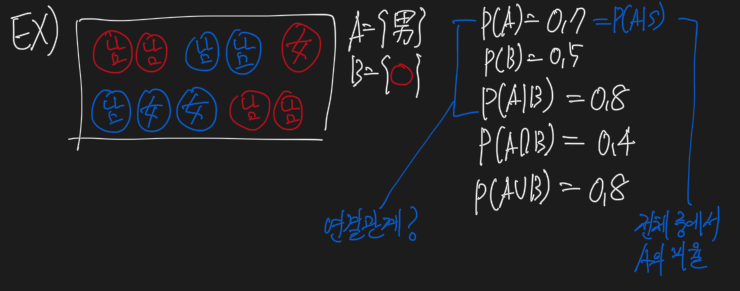 EX)
남 남 남 남 女
남 女 女 남 남
A={男}
B={○}
P(A)=0.7 =P(A|S)
P(B)=0.5
P(A|B)=0.8
P(A∩B)=0.4
P(A∪B)=0.8
연결관계?
전체 중에서
A의 비율